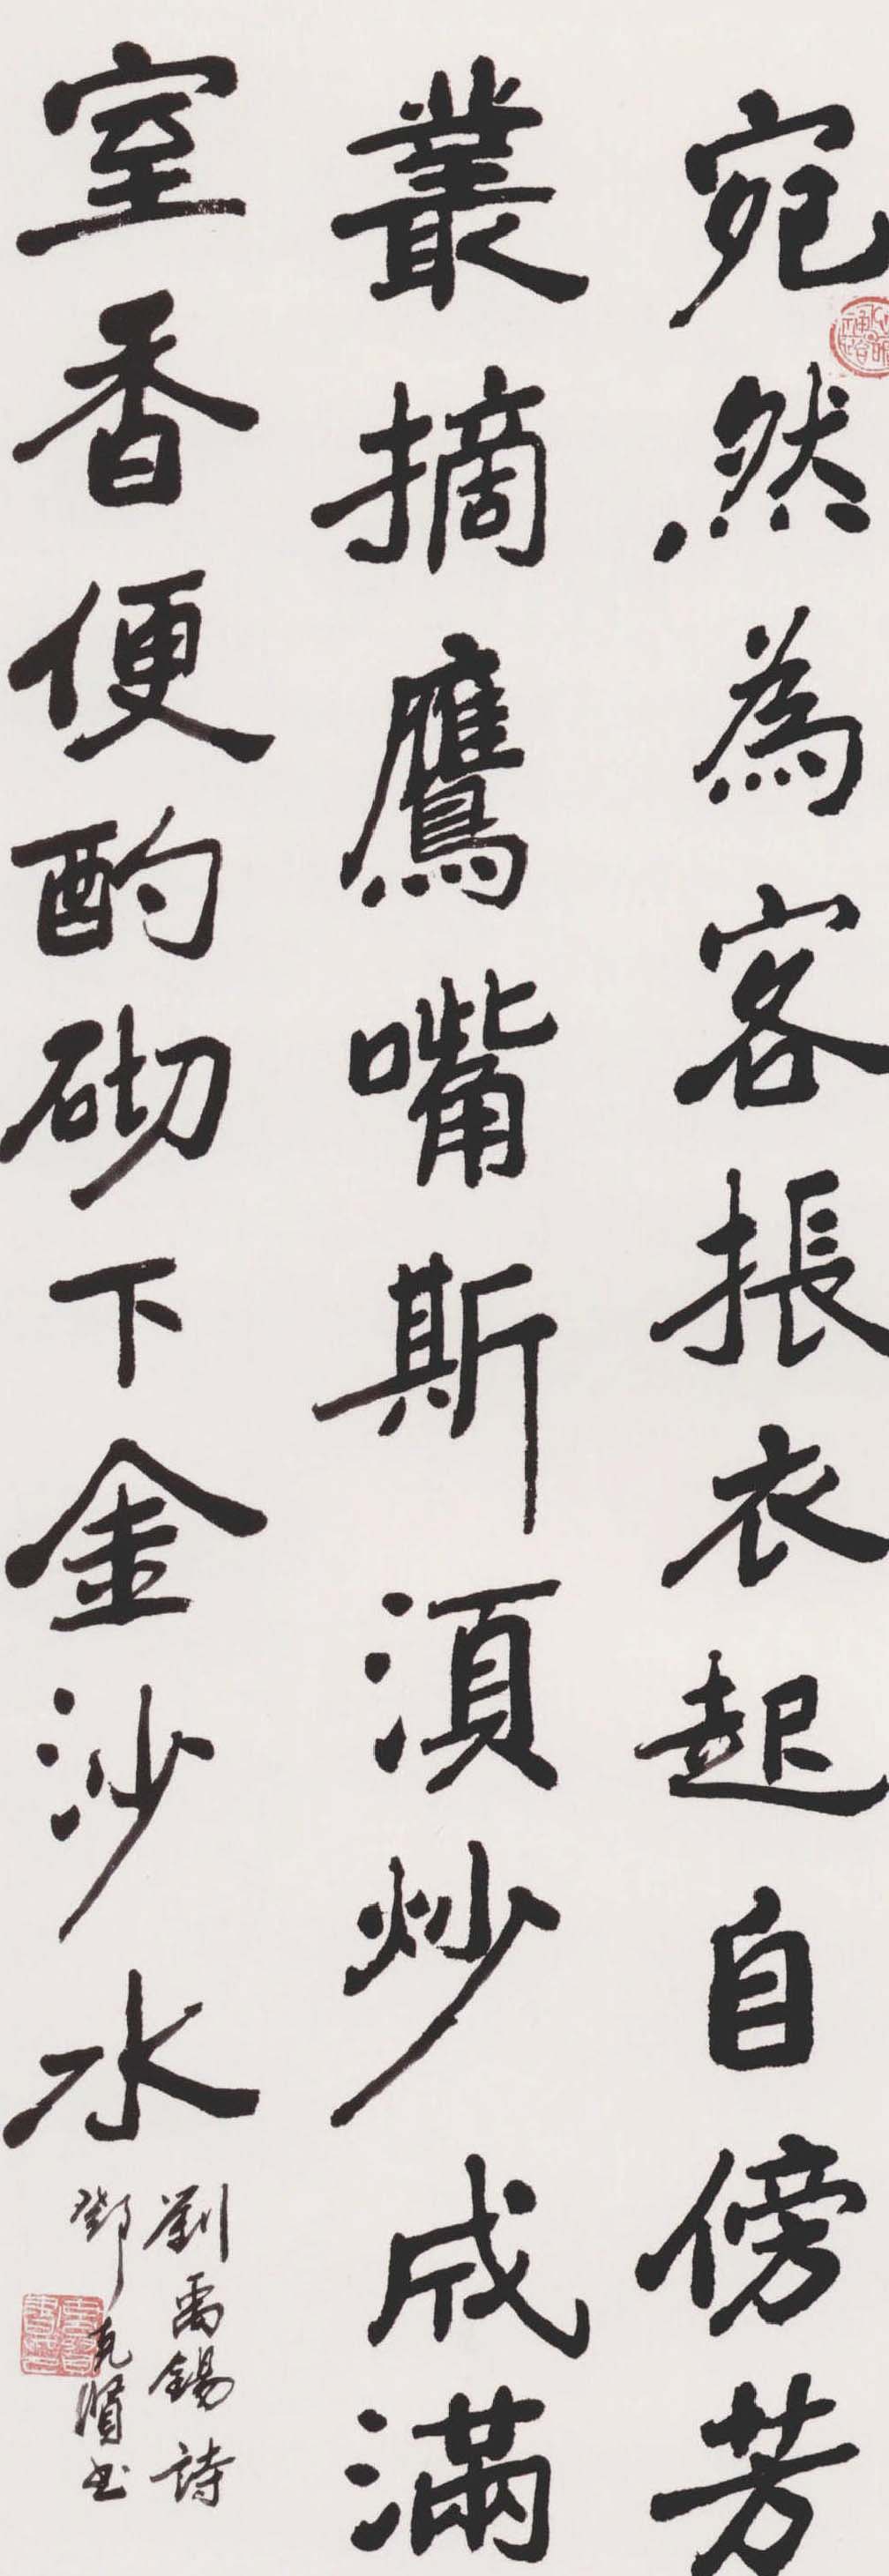 宛然為客振衣起自傍芳
叢摘鷹嘴斯須炒成滿
室香便酌砌下金沙水
劉禹錫詩
鄧克賢书